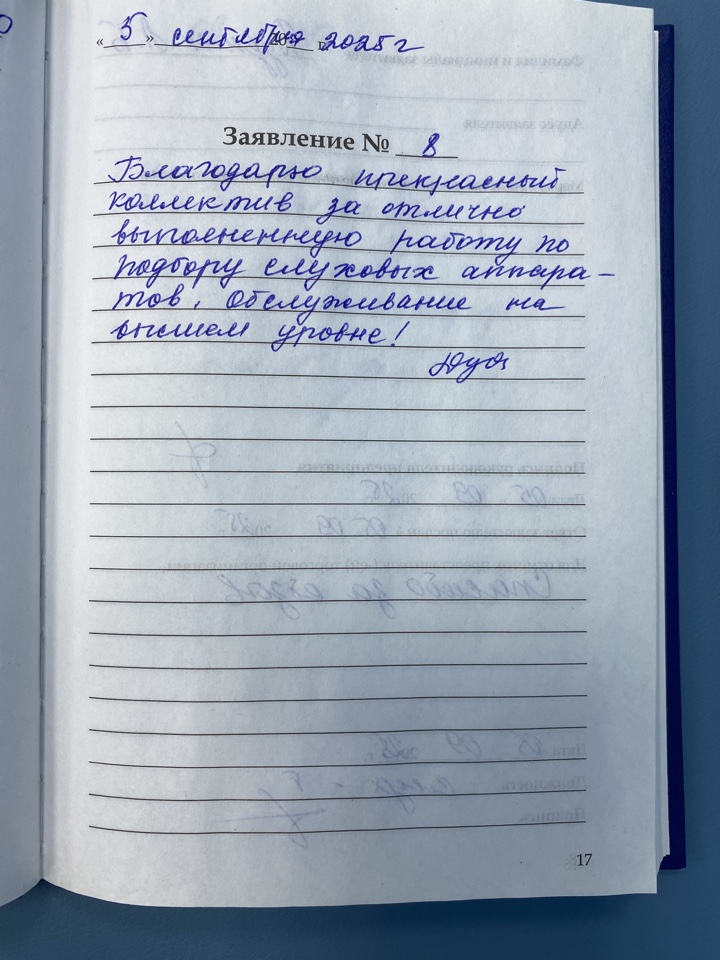 « 5 » сентября 2025 г
Заявление № 8
Благодарю прекрасный
коллектив за отлично
выполненную работу по
подбору слуховых аппара-
тов. Обслуживание на
высшем уровне!
17